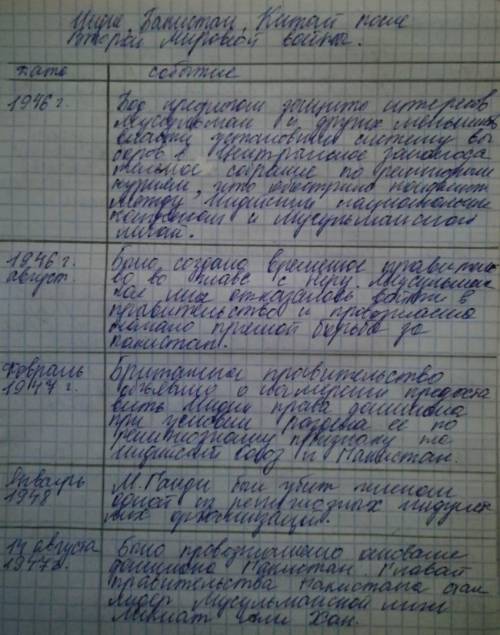 Индия, Пакистан, Китай после
Второй Мировой войны.
дата событие
1946 г. Под предлогом защиты интересов
мусульман и других меньшинств
власти установили систему вы
боров в центральное законода
тельное собрание по религиозным
куриям, что обострило конфликт
между Индийским национальным
конгрессом и Мусульманской
лигой.
1946 г. Было создано временное правительс
август во во главе с Неру. Мусульман
кая лига отказалась войти в
правительство и провозгласила
начало прямой борьбы за
пакистан.
Февраль Британское правительство
1947 г. объявило о намерении предоста
вить Индии права доминиона
при условии раздела её по
религиозному признаку на
индийский союз и Пакистан.
Январь М. Ганди был убит членом
1948 одной из религиозных индуист
ких организаций.
14 августа Было провозглашено основание
1947г. доминиона Пакистан. Главой
правительства Пакистана стал
лидер Мусульманской лиги
Лиакат Али Хан.